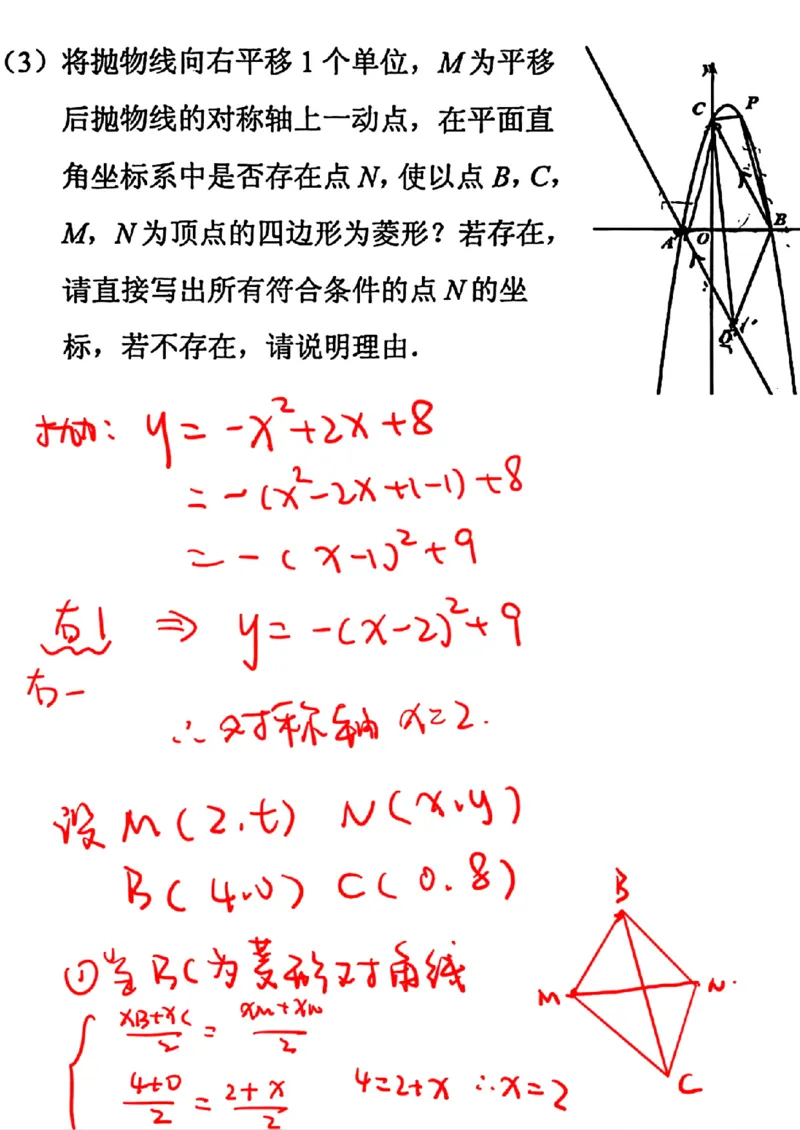 (3) 将抛物线向右平移 1 个单位，M 为平移
后抛物线的对称轴上一动点，在平面直
角坐标系中是否存在点 N，使以点 B，C，
M，N 为顶点的四边形为菱形？若存在，
请直接写出所有符合条件的点 N 的坐
标，若不存在，请说明理由．
y
C P
A O B
Q
y = -x²+2x+8
= -(x²-2x+1-1)+8
= -(x-1)²+9
右1 ⇒ y = -(x-2)²+9
右一
∴对称轴 x=2.
设 M(2,t) N(x,y)
B(4,0) C(0,8)
B
①当BC为菱形对角线
M N
(xB+xC)/2 = (xM+xN)/2
(4+0)/2 = (2+x)/2 4=2+x ∴x=2
C